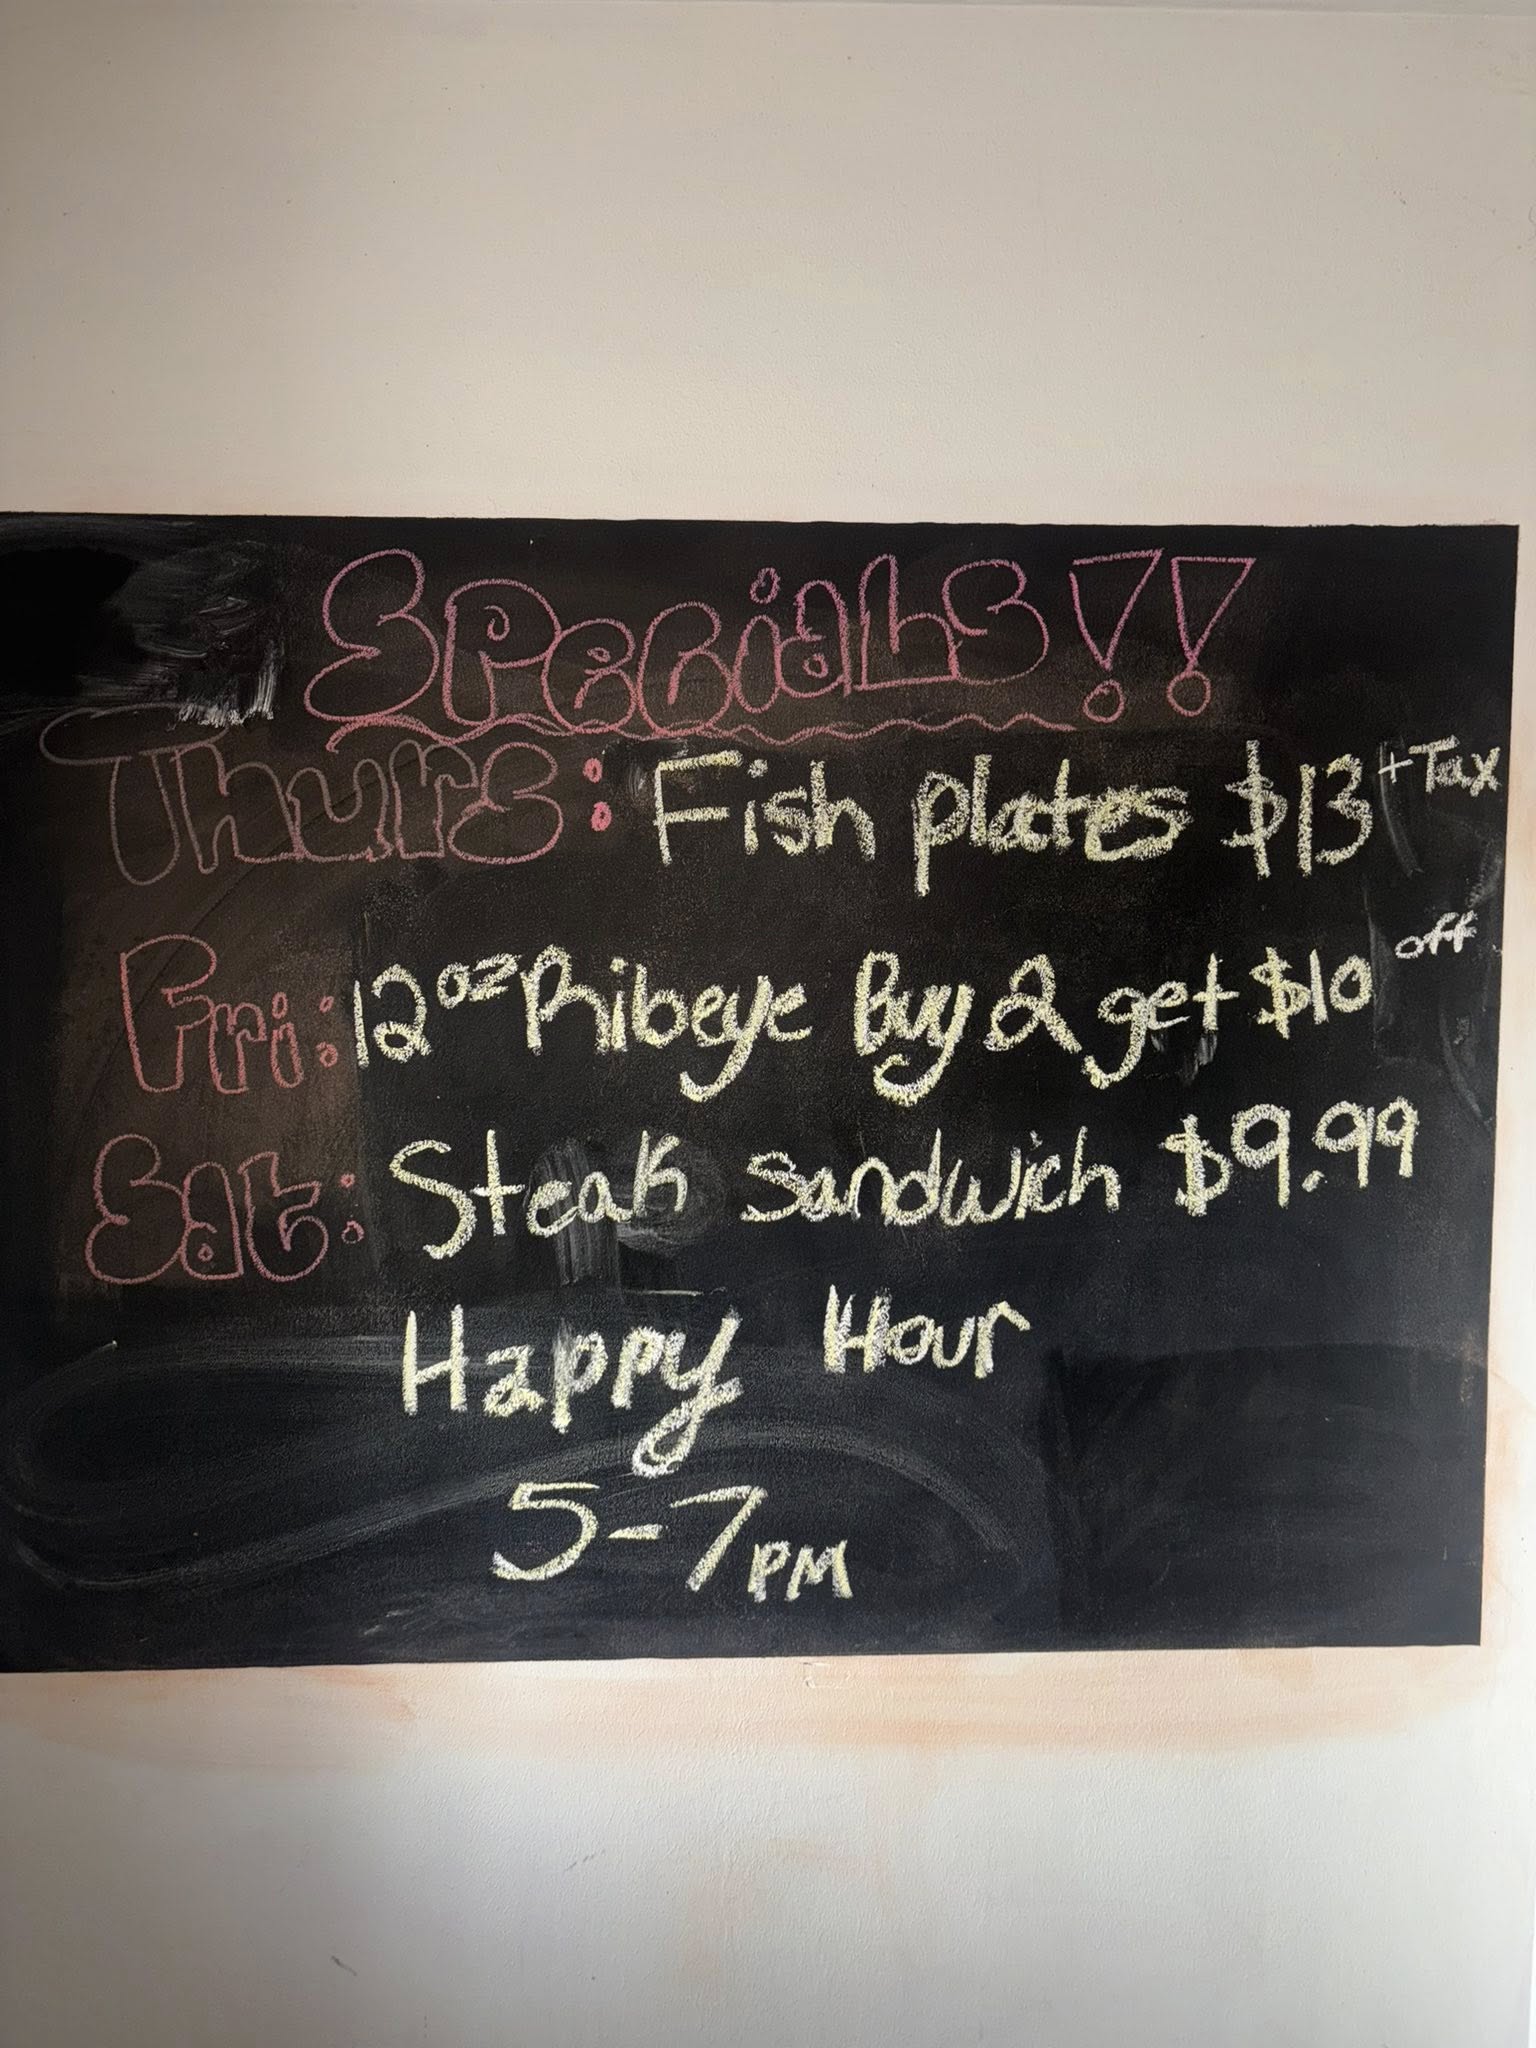 Specials!!
Thurs: Fish plates $13 + Tax
Fri: 12 oz Ribeye Buy 2 get $10 off
Sat: Steak Sandwich $9.99
Happy Hour
5-7 PM